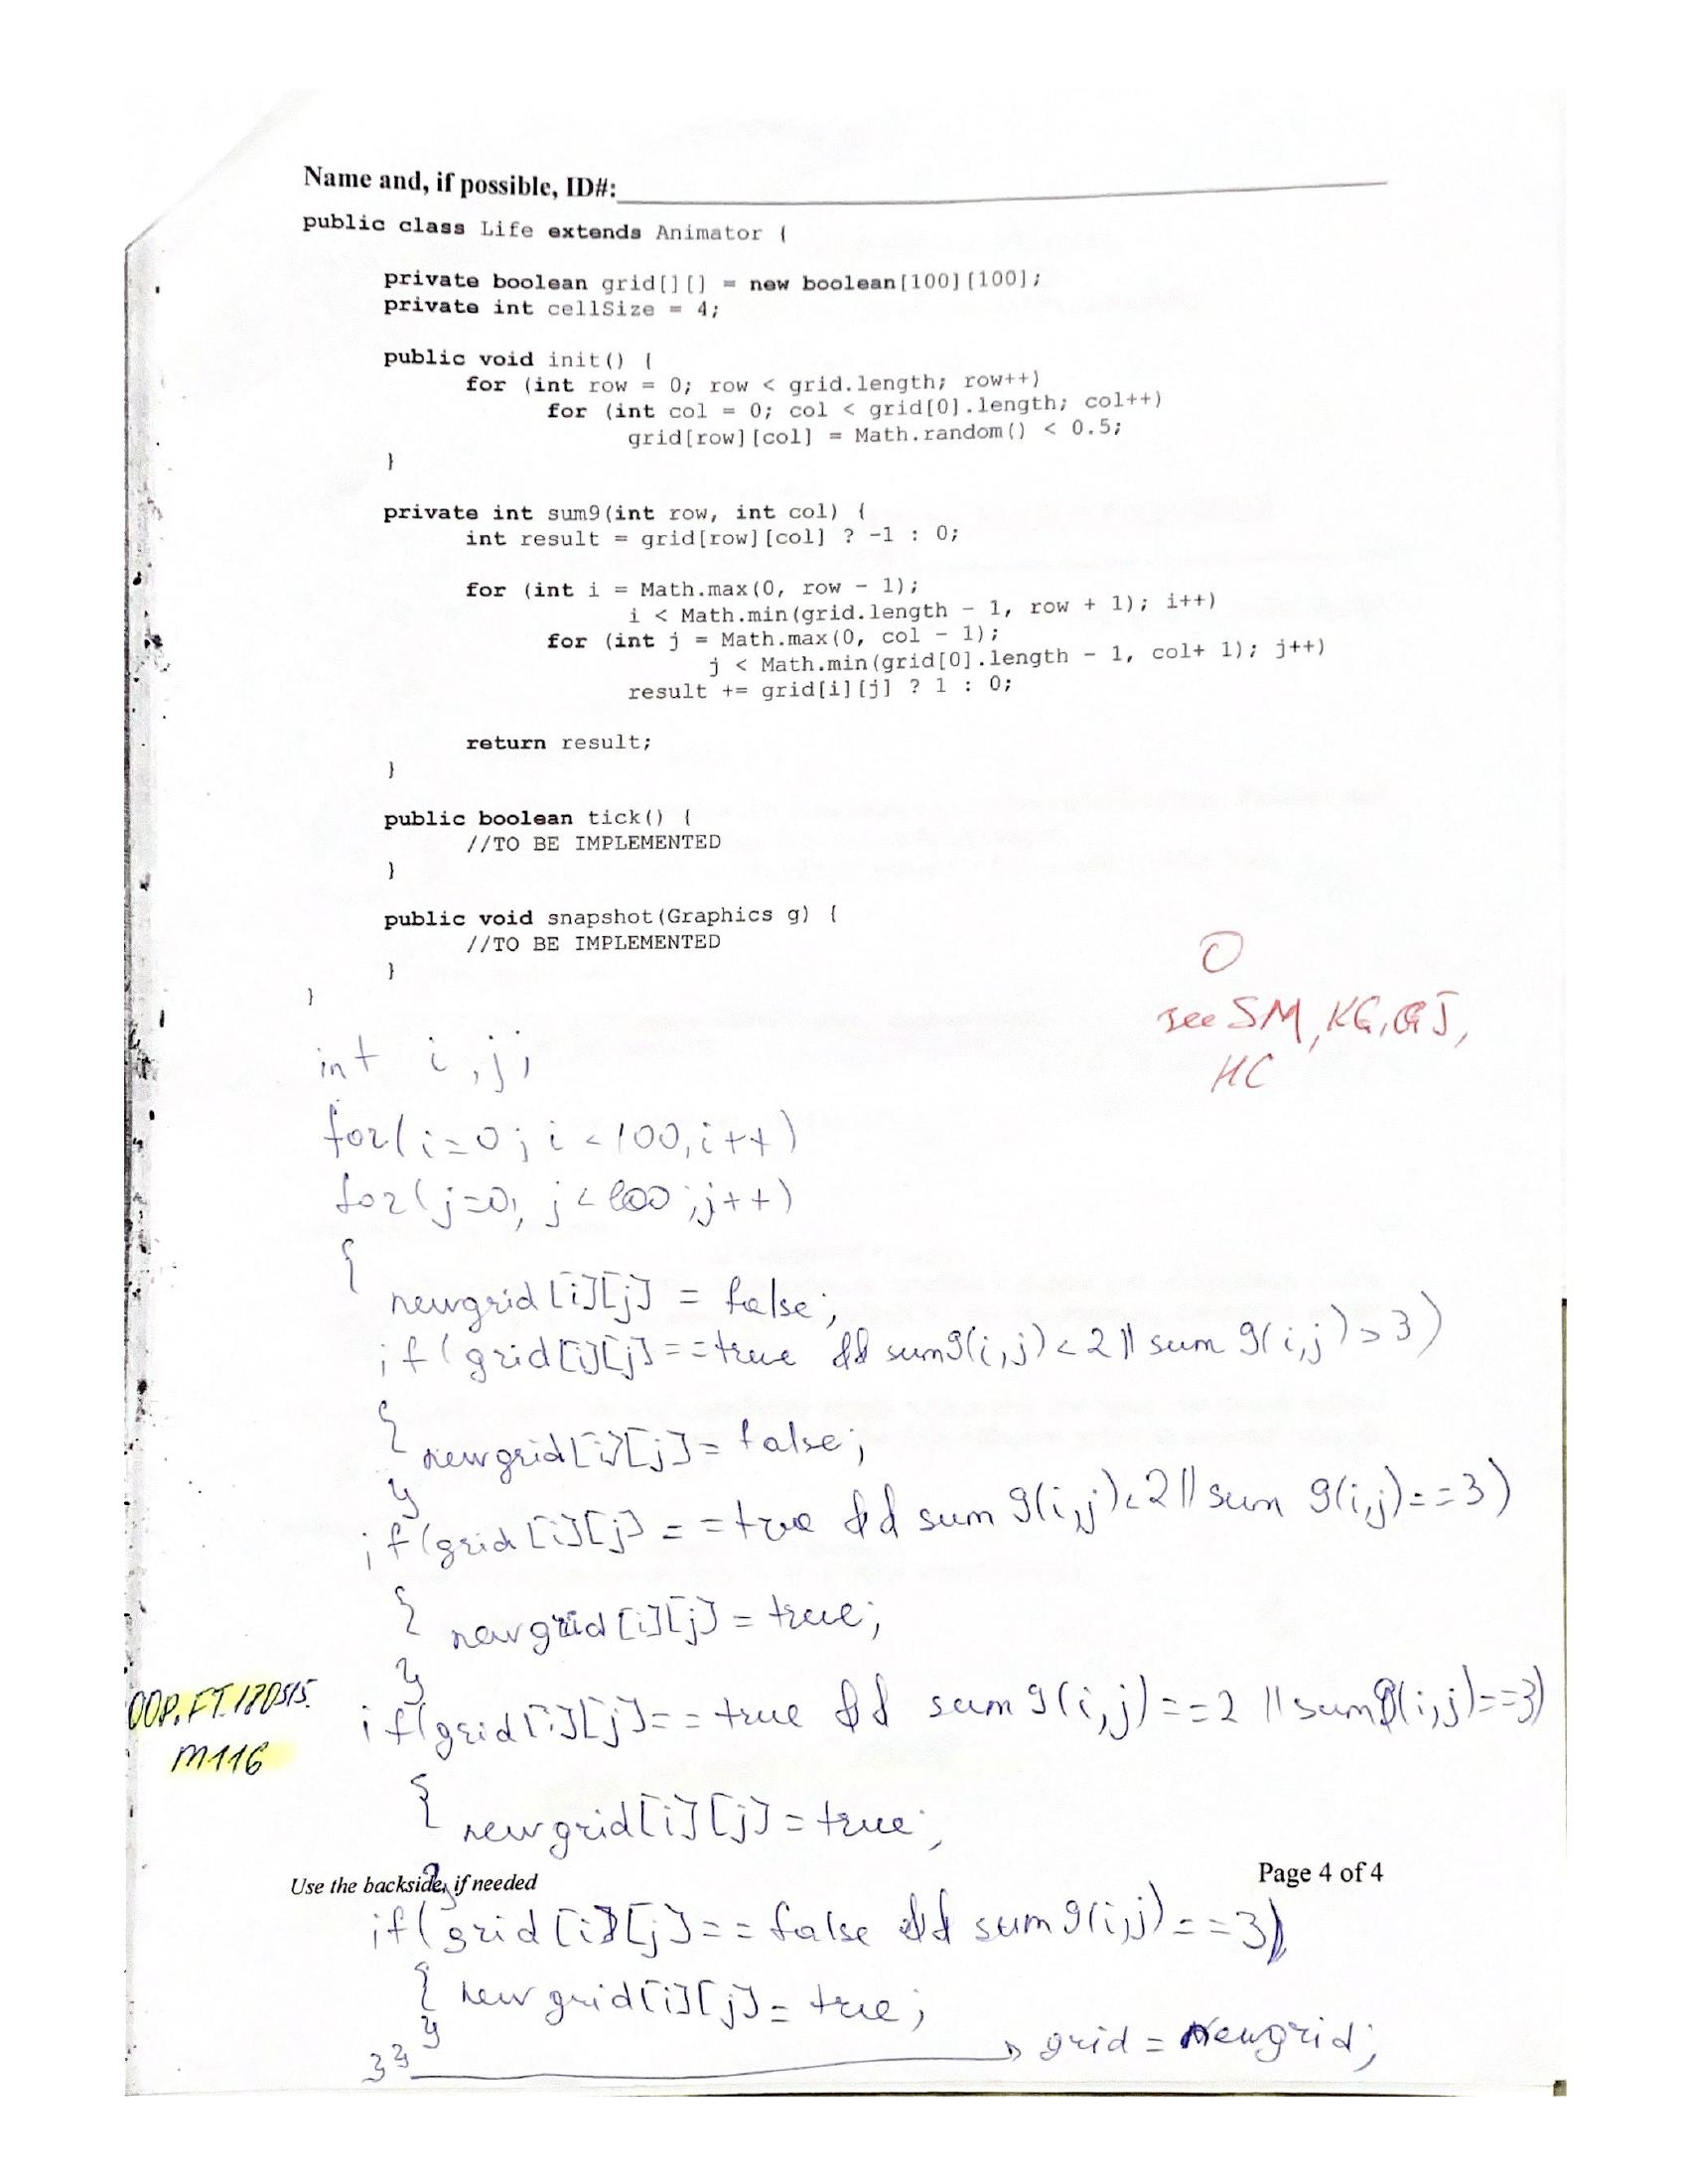 Name and, if possible, ID#:
public class Life extends Animator {
private boolean grid[][] = new boolean[100][100];
private int cellSize = 4;
public void init() {
for (int row = 0; row < grid.length; row++)
for (int col = 0; col < grid[0].length; col++)
grid[row][col] = Math.random() < 0.5;
}
private int sum9(int row, int col) {
int result = grid[row][col] ? -1 : 0;
for (int i = Math.max(0, row - 1);
i < Math.min(grid.length - 1, row + 1); i++)
for (int j = Math.max(0, col - 1);
j < Math.min(grid[0].length - 1, col+ 1); j++)
result += grid[i][j] ? 1 : 0;
return result;
}
public boolean tick() {
//TO BE IMPLEMENTED
}
public void snapshot(Graphics g) {
//TO BE IMPLEMENTED
}
}
0
see SM, KG, GJ,
HC
int i, j;
for(i=0; i<100, i++)
for(j=0, j<100; j++)
{
newgrid[i][j] = false;
if(grid[i][j]==true && sum9(i,j)<2 || sum9(i,j)>3)
{ newgrid[i][j]= false;
}
if(grid[i][j]==true && sum9(i,j)<2 || sum9(i,j)==3)
{ newgrid[i][j]=true;
}
if(grid[i][j]==true && sum9(i,j)==2 || sum9(i,j)==3)
OOP.FT.170515.
M116
{ newgrid[i][j]=true;
}
Use the backside, if needed
Page 4 of 4
if(grid[i][j]==false && sum9(i,j)==3)
{ newgrid[i][j]=true;
}
}} grid = newgrid;